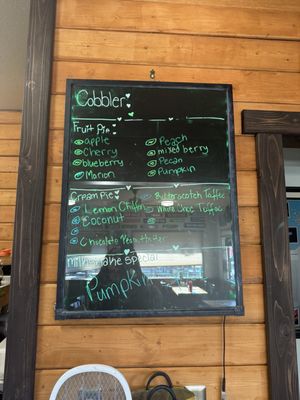 Cobbler
Fruit Pie
apple
Peach
Cherry
mixed berry
blueberry
Pecan
Marion
Pumpkin
Cream Pie
Lemon Chiffon
Butterscotch Taffee
Coconut
Chocolate Peanut Butter
Milkshake Special
Pumpkin